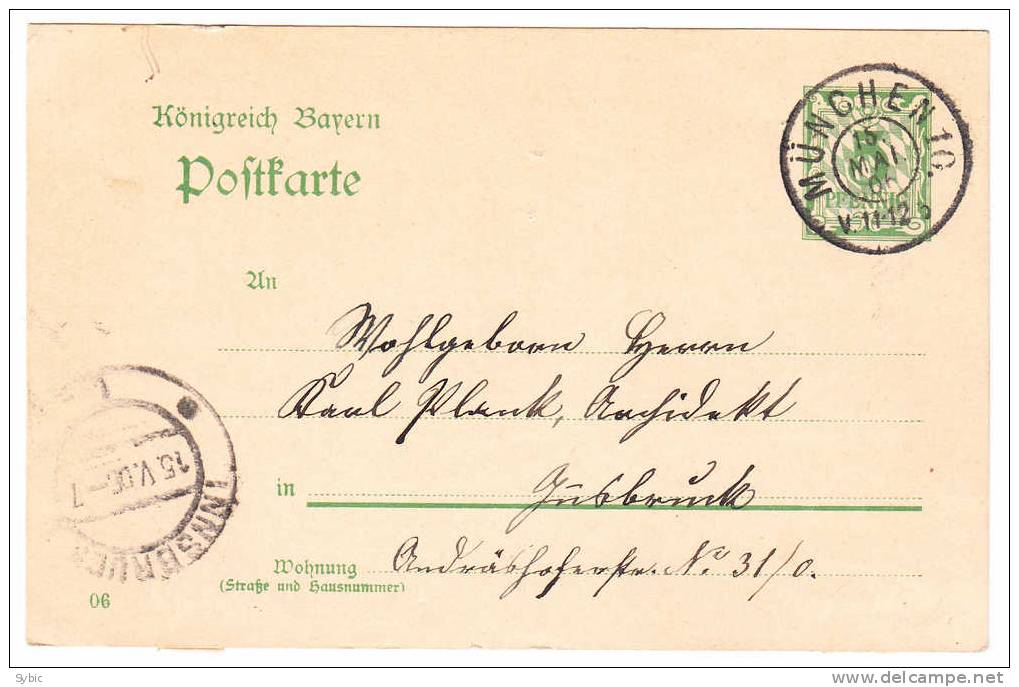 Königreich Bayern
Postkarte
MÜNCHEN 10.
15.
MAI
06
V.11-12
PFENNIG
An
Wohlgeborn Herrn
Karl Plank, Archidekt
in Insbruck
Wohnung Andräshoferstr. No 31/0.
(Straße und Hausnummer)
06
INNSBRUCK
15.V.06-7
Sybic
www.delcampe.net